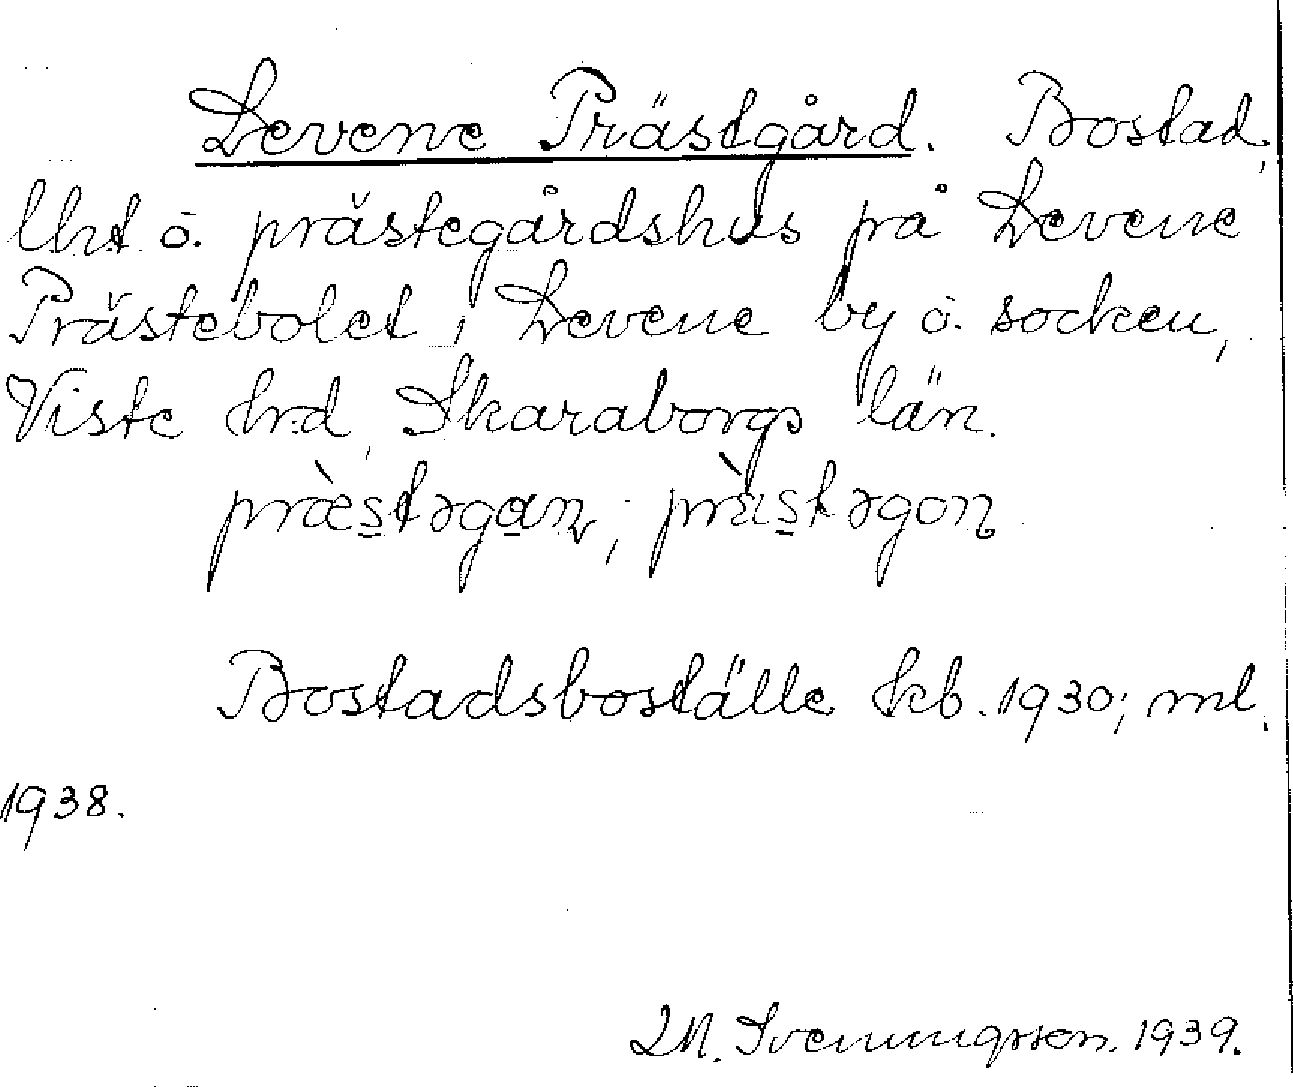 Levene Prästgård. Bostad,
lht o. prästegårdshus på Levene
Prästebolet i Levene by o. socken,
Viste hrd, Skaraborgs län.
præ̀stəgan, prästəgon
Bostadsboställe kb. 1930; ml.
1938.
M. Svenungsson. 1939.